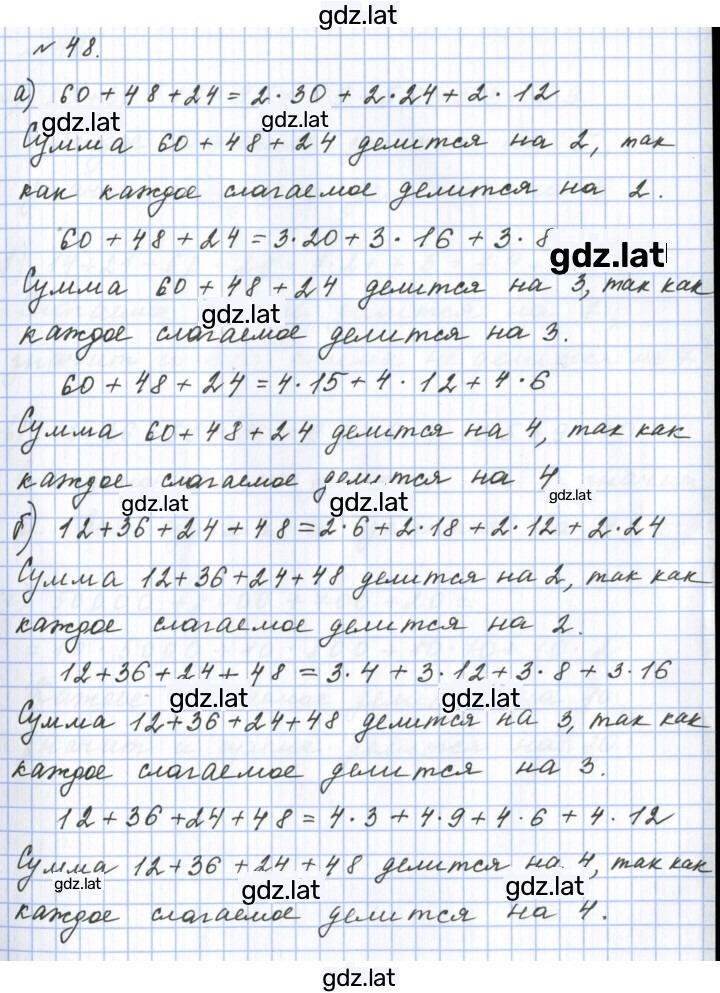 gdz.lat
№ 48.
а) 60 + 48 + 24 = 2 · 30 + 2 · 24 + 2 · 12
gdz.lat gdz.lat
Сумма 60 + 48 + 24 делится на 2, так
как каждое слагаемое делится на 2.
60 + 48 + 24 = 3 · 20 + 3 · 16 + 3 · 8
gdz.lat
Сумма 60 + 48 + 24 делится на 3, так как
gdz.lat
каждое слагаемое делится на 3.
60 + 48 + 24 = 4 · 15 + 4 · 12 + 4 · 6
Сумма 60 + 48 + 24 делится на 4, так как
каждое слагаемое делится на 4
gdz.lat gdz.lat gdz.lat
б) 12 + 36 + 24 + 48 = 2 · 6 + 2 · 18 + 2 · 12 + 2 · 24
Сумма 12 + 36 + 24 + 48 делится на 2, так как
каждое слагаемое делится на 2.
12 + 36 + 24 + 48 = 3 · 4 + 3 · 12 + 3 · 8 + 3 · 16
gdz.lat gdz.lat
Сумма 12 + 36 + 24 + 48 делится на 3, так как
каждое слагаемое делится на 3.
12 + 36 + 24 + 48 = 4 · 3 + 4 · 9 + 4 · 6 + 4 · 12
Сумма 12 + 36 + 24 + 48 делится на 4, так как
gdz.lat gdz.lat gdz.lat
каждое слагаемое делится на 4.
gdz.lat